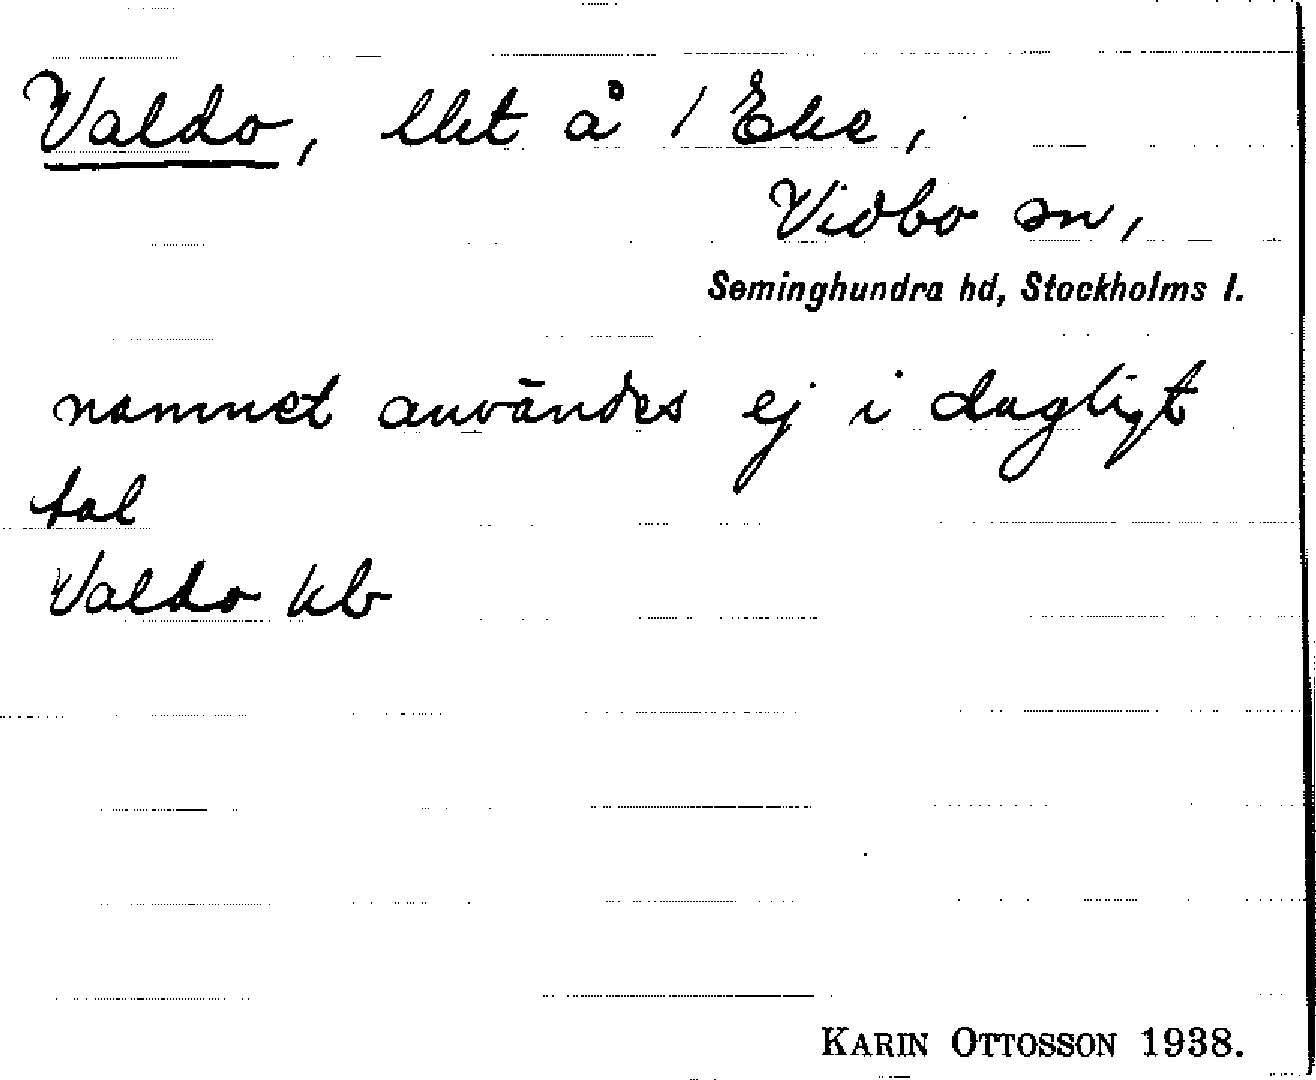 Valdo, llet å 1 Eke,
Vidbo sn,
Seminghundra hd, Stockholms l.
namnet användes ej i dagligt
tal
Valdo kb
KARIN OTTOSSON 1938.